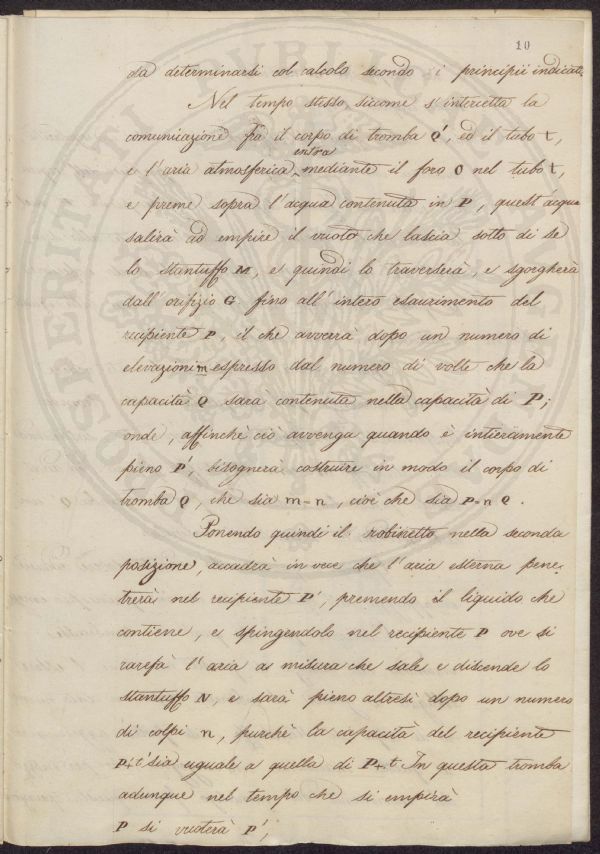 10
da determinarsi col calcolo secondo i principii indicati.
Nel tempo stesso, siccome s'intercetta la
comunicazione fra il corpo di tromba Q', ed il tubo t,
e l'aria atmosferica entra mediante il foro O nel tubo t,
e preme sopra l'acqua contenuta in P, quest'acqua
salirà ad empire il vuoto che lascia sotto di se
lo stantuffo M, e quindi lo traverserà, e sgorgherà
dall'orifizio G fino all'intero esaurimento del
recipiente P, il che avverrà dopo un numero di
elevazioni m espresso dal numero di volte che la
capacità Q sarà contenuta nella capacità di P;
onde, affinchè ciò avvenga quando è intieramente
pieno P', bisognerà costruire in modo il corpo di
tromba Q, che sia m=n, cioè che sia P=nQ.
Ponendo quindi il robinetto nella seconda
posizione, accadrà in vece che l'aria esterna pene-
trerà nel recipiente P', premendo il liquido che
contiene, e spingendolo nel recipiente P ove si
rarefà l'aria as misura che sale e discende lo
stantuffo N, e sarà pieno altresì dopo un numero
di colpi n, purchè la capacità del recipiente
P+t' sia uguale a quella di P+t. In questa tromba
adunque nel tempo che si empirà
P si vuoterà P';